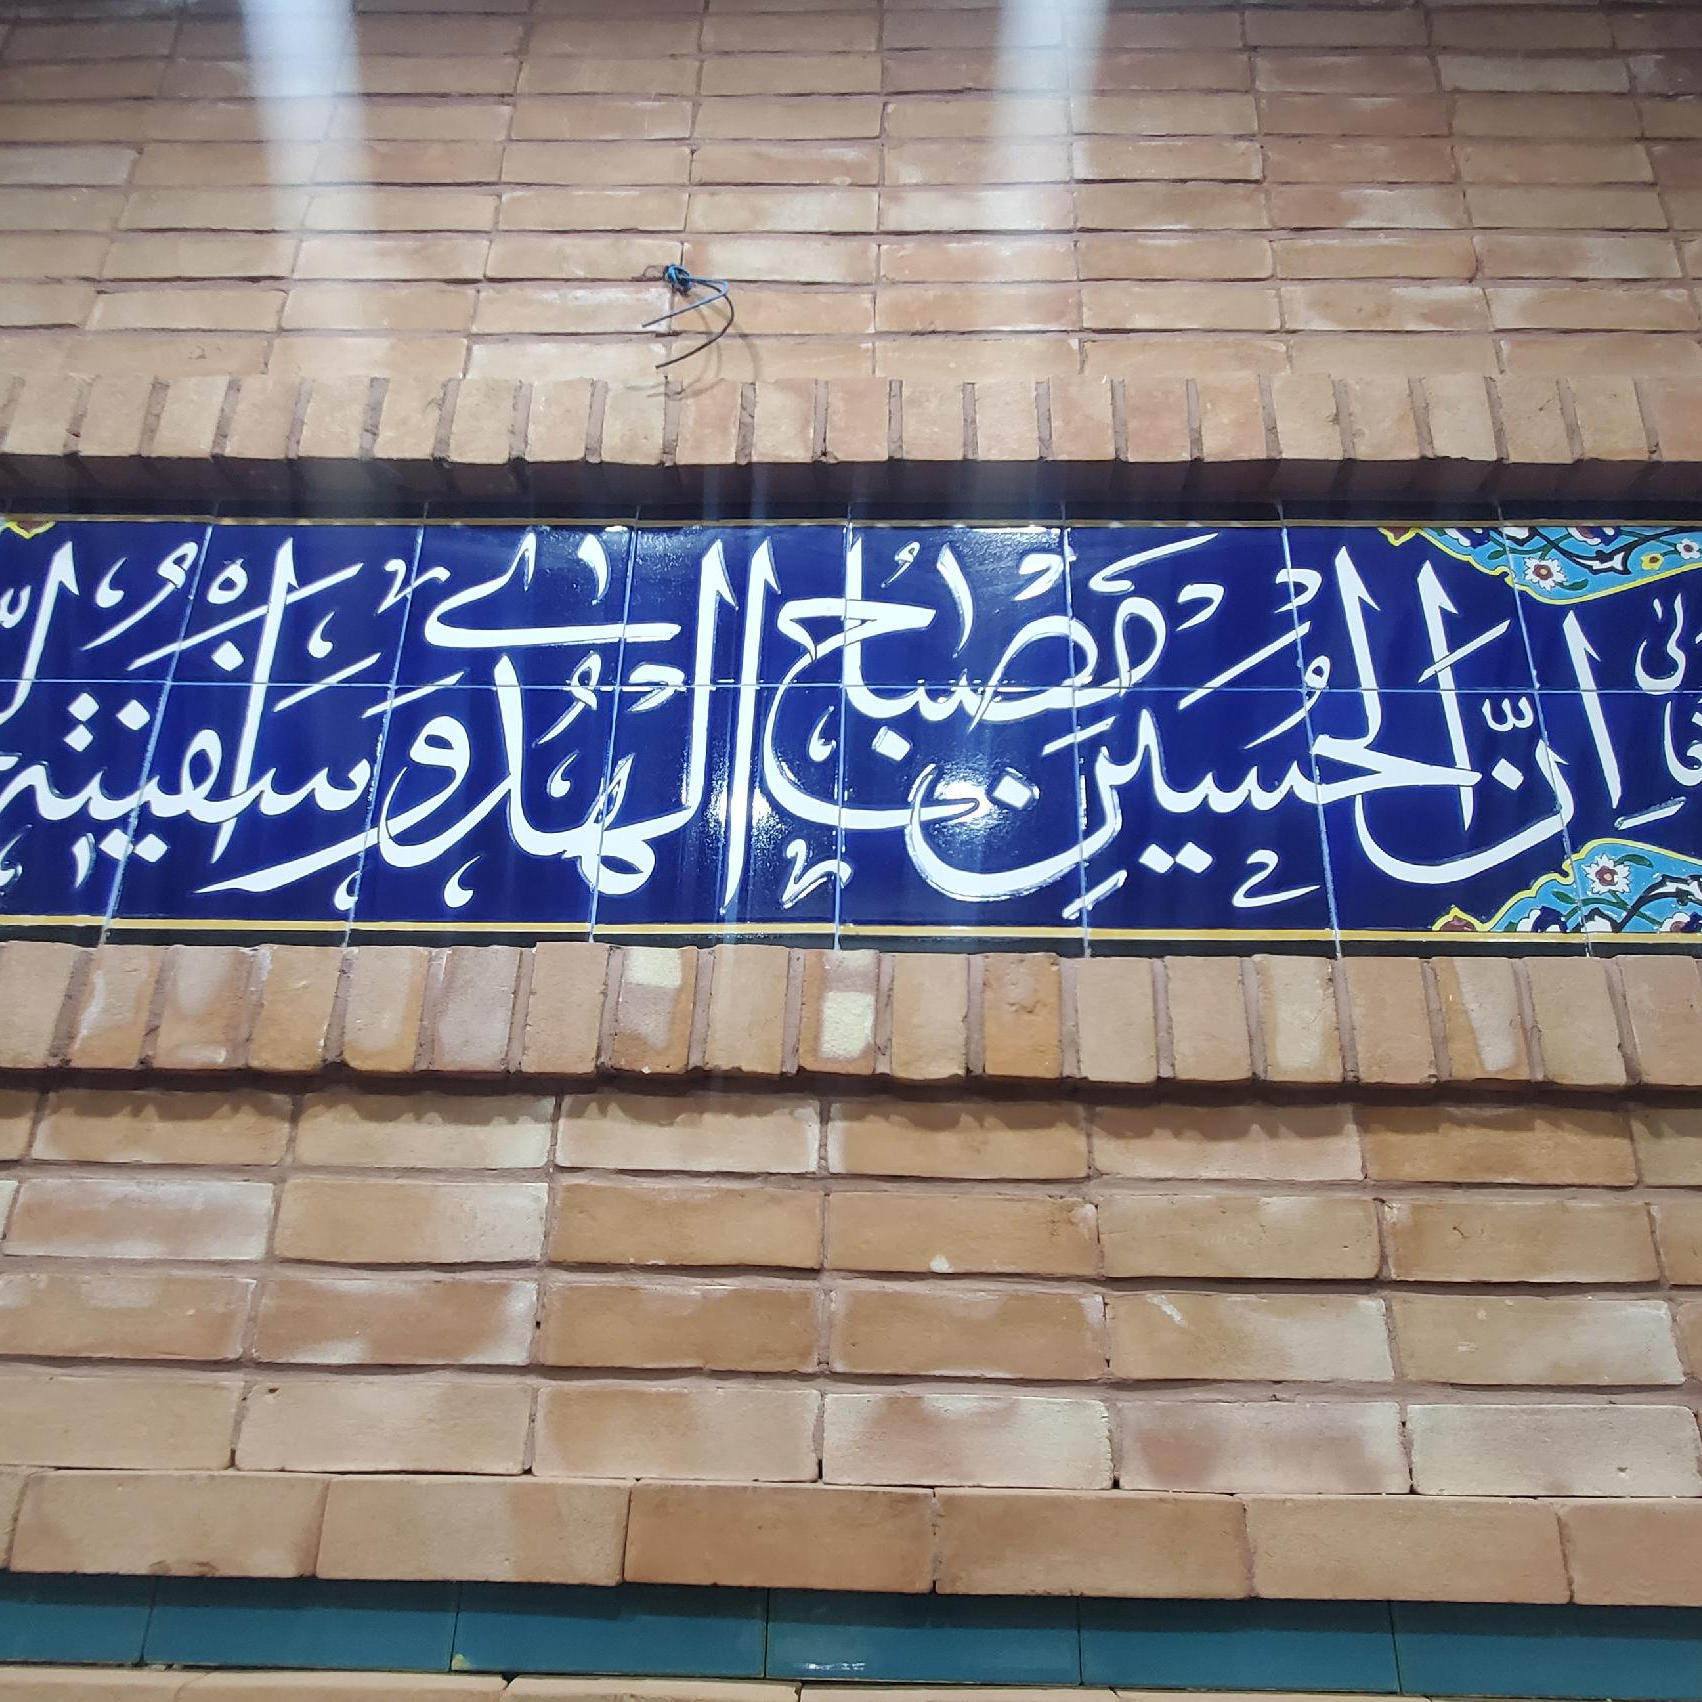 ان الحسین مصباح الهدی و سفینة ال